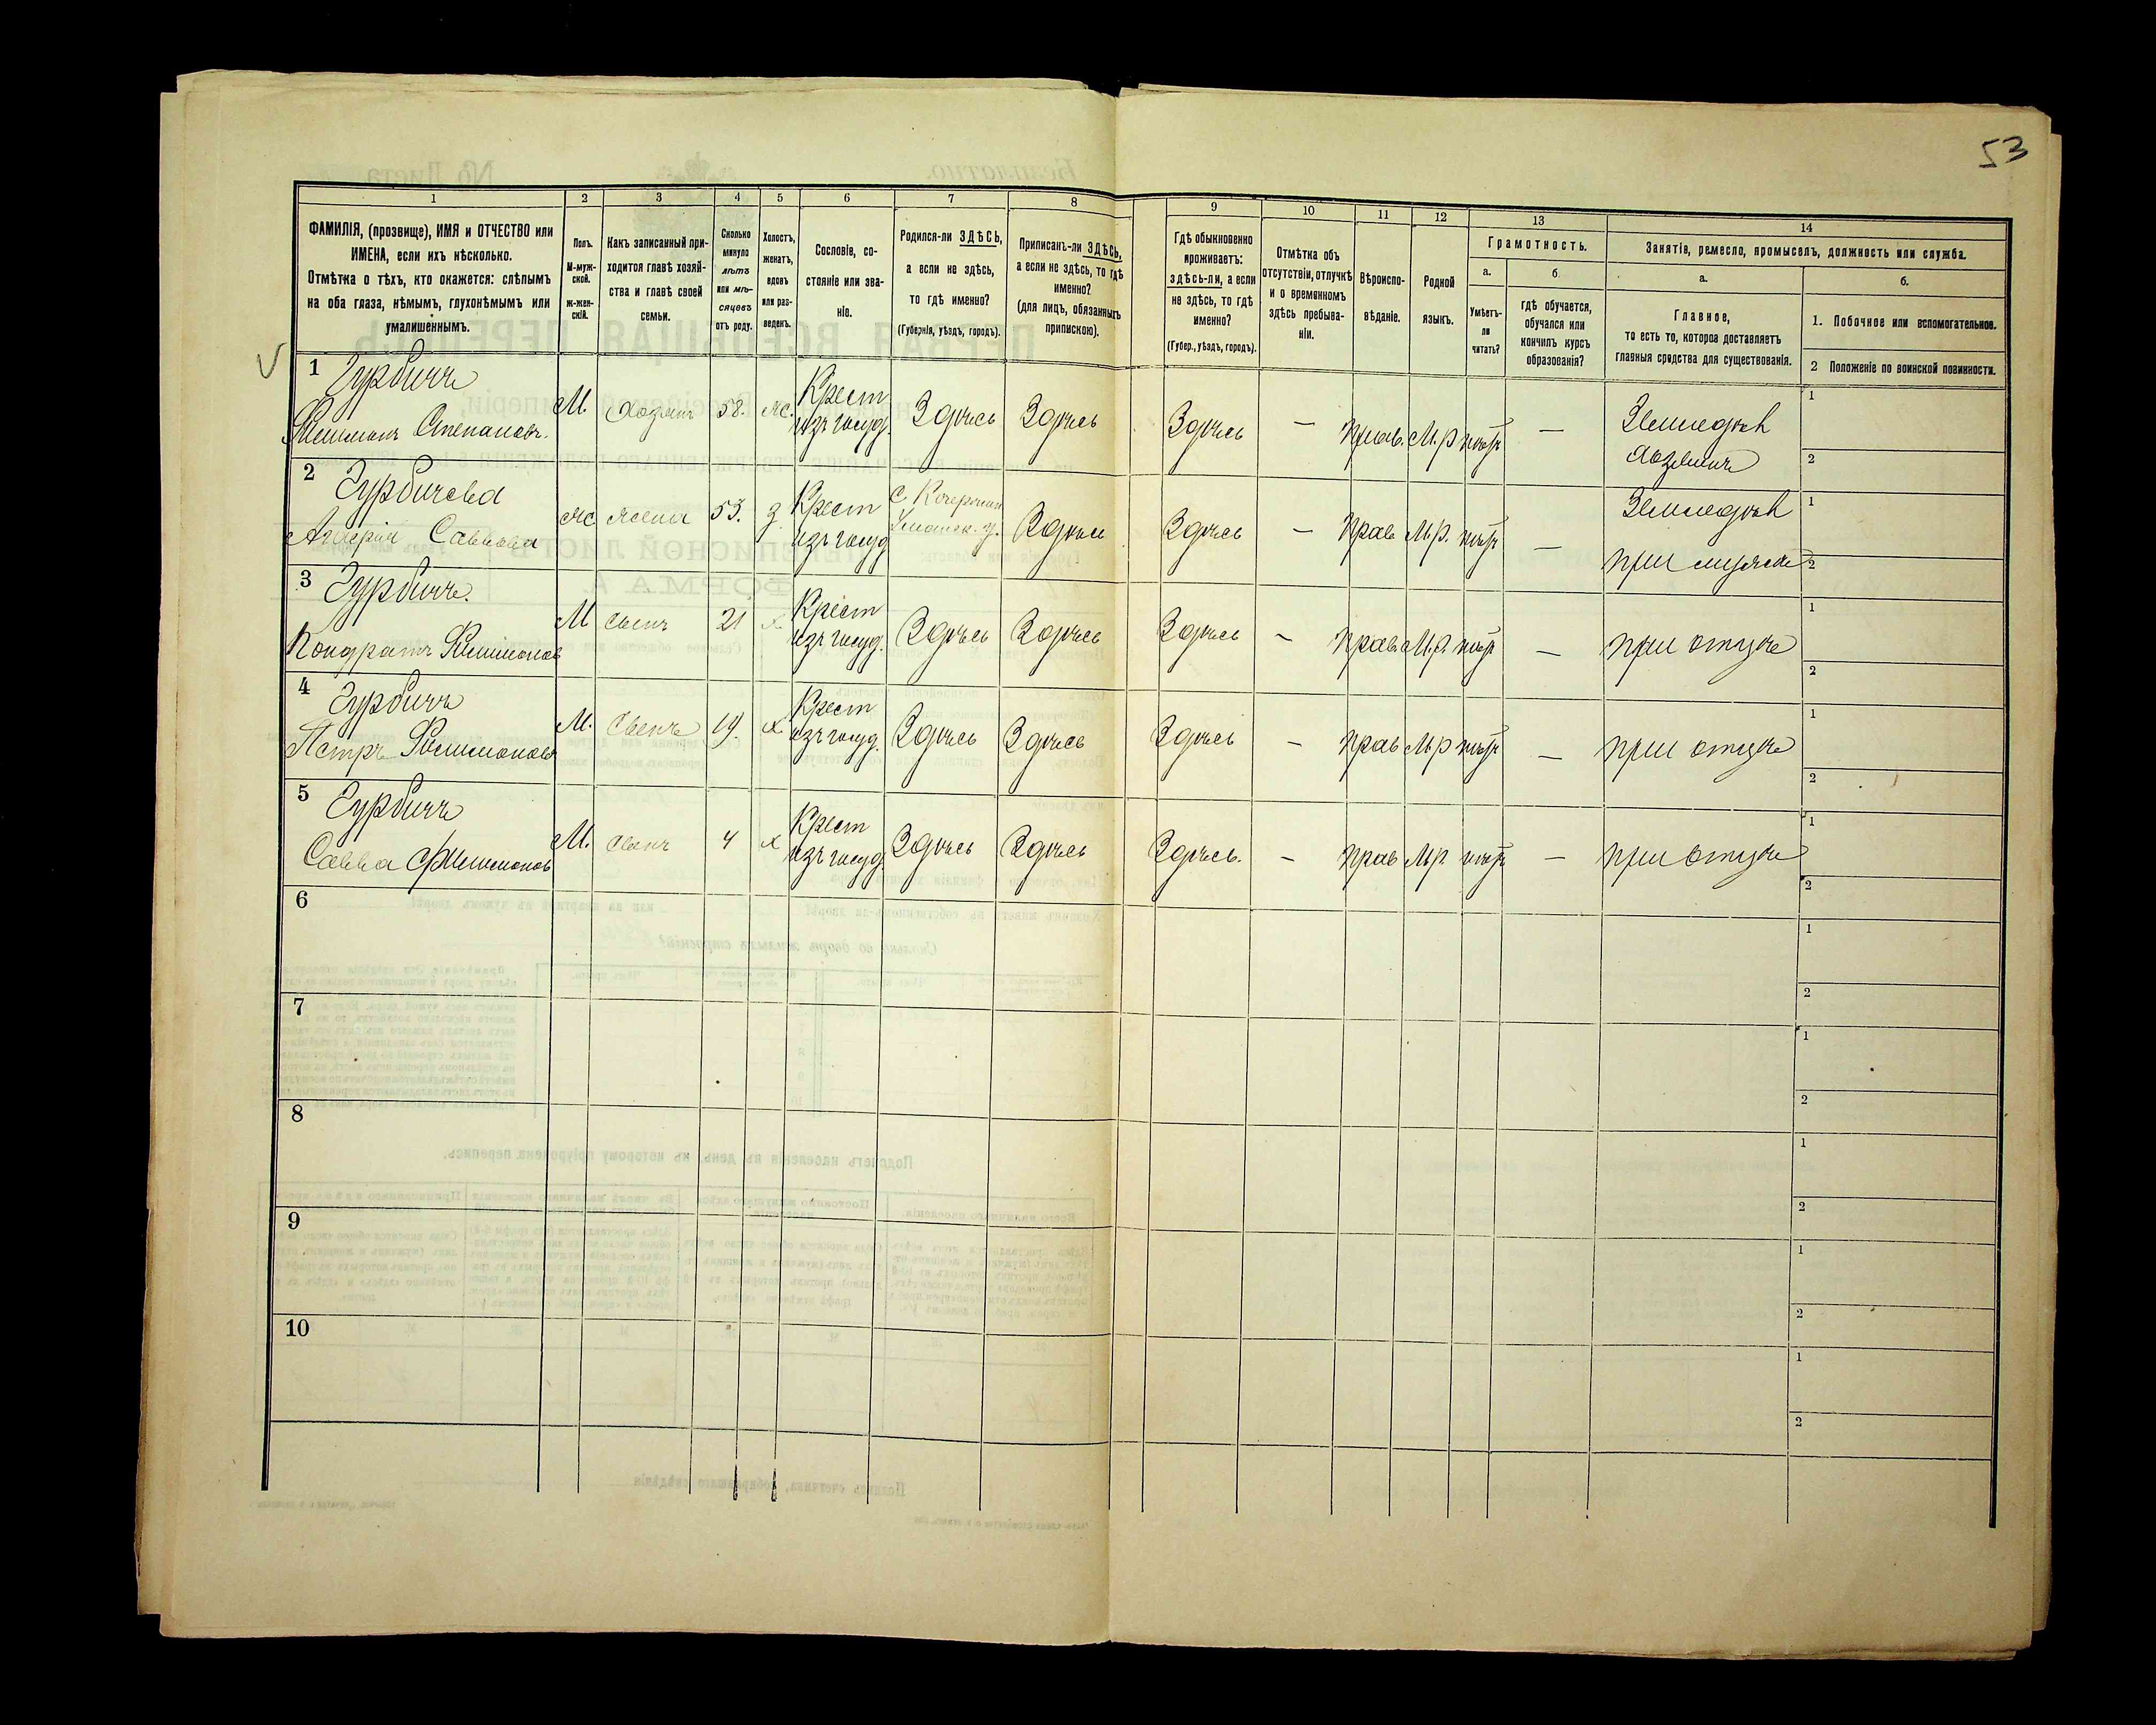 53
1
2
3
4
5
6
7
8
9
10
11
12
13
14
ФАМИЛІЯ, (прозвище), ИМЯ и ОТЧЕСТВО или
ИМЕНА, если ихъ нѣсколько.
Отмѣтка о тѣхъ, кто окажется: слѣпымъ
на оба глаза, нѣмымъ, глухонѣмымъ или
умалишеннымъ.
Полъ.
М-муж-
ской.
ж-жен-
скій.
Какъ записанный при-
ходится главѣ хозяй-
ства и главѣ своей
семьи.
Сколько
минуло
лѣтъ
или мѣ-
сяцевъ
отъ роду.
Холостъ,
женатъ,
вдовъ
или раз-
веденъ.
Сословіе, со-
стояніе или зва-
ніе.
Родился-ли ЗДѢСЬ,
а если не здѣсь,
то гдѣ именно?
(Губернія, уѣздъ, городъ).
Приписанъ-ли ЗДѢСЬ,
а если не здѣсь, то гдѣ
именно?
(для лицъ, обязанныхъ
припискою).
Гдѣ обыкновенно
проживаетъ:
здѣсь-ли, а если
не здѣсь, то гдѣ
именно?
(Губер., уѣздъ, городъ).
Отмѣтка объ
отсутствіи, отлучкѣ
и о временномъ
здѣсь пребыва-
ніи.
Вѣроиспо-
вѣданіе.
Родной
языкъ.
Грамотность.
а.
Умѣетъ-
ли
читать?
б.
гдѣ обучается,
обучался или
кончилъ курсъ
образованія?
Занятіе, ремесло, промыселъ, должность или служба.
а.
Главное,
то есть то, которое доставляетъ
главныя средства для существованія.
б.
1. Побочное или вспомогательное.
2 Положеніе по воинской повинности.
1 Гурбичъ
Филимонъ Степановъ.
М. Хозяинъ 58. ж. Крест
изъ госуд. Здѣсь Здѣсь Здѣсь — прав. М.р нѣтъ — Земледѣл
хозяинъ
1
2
2 Гурбичева
Савкова
ж жена 53. з. Крест
изъ госуд
Уманск. у. Здѣсь Здѣсь — прав М.р. нѣтъ — Земледѣл
при мужѣ
1
2
3 Гурбичъ.
Кондратъ Филимонов
М сынъ 21 х Крест
изъ госуд. Здѣсь Здѣсь Здѣсь — прав. М.р. нѣтъ — при отцѣ
1
2
4 Гурбичъ
Петръ Филимоновъ
М. Сынъ 19. х Крест
изъ госуд. Здѣсь Здѣсь Здѣсь — прав М.р нѣтъ — при отцѣ
1
2
5 Гурбичъ
Савва Филимонов
М. сынъ 4 х Крест
изъ госуд Здѣсь Здѣсь Здѣсь. — прав М.р нѣтъ — при отцѣ
1
2
6
1
2
7
1
2
8
1
2
9
1
2
10
1
2